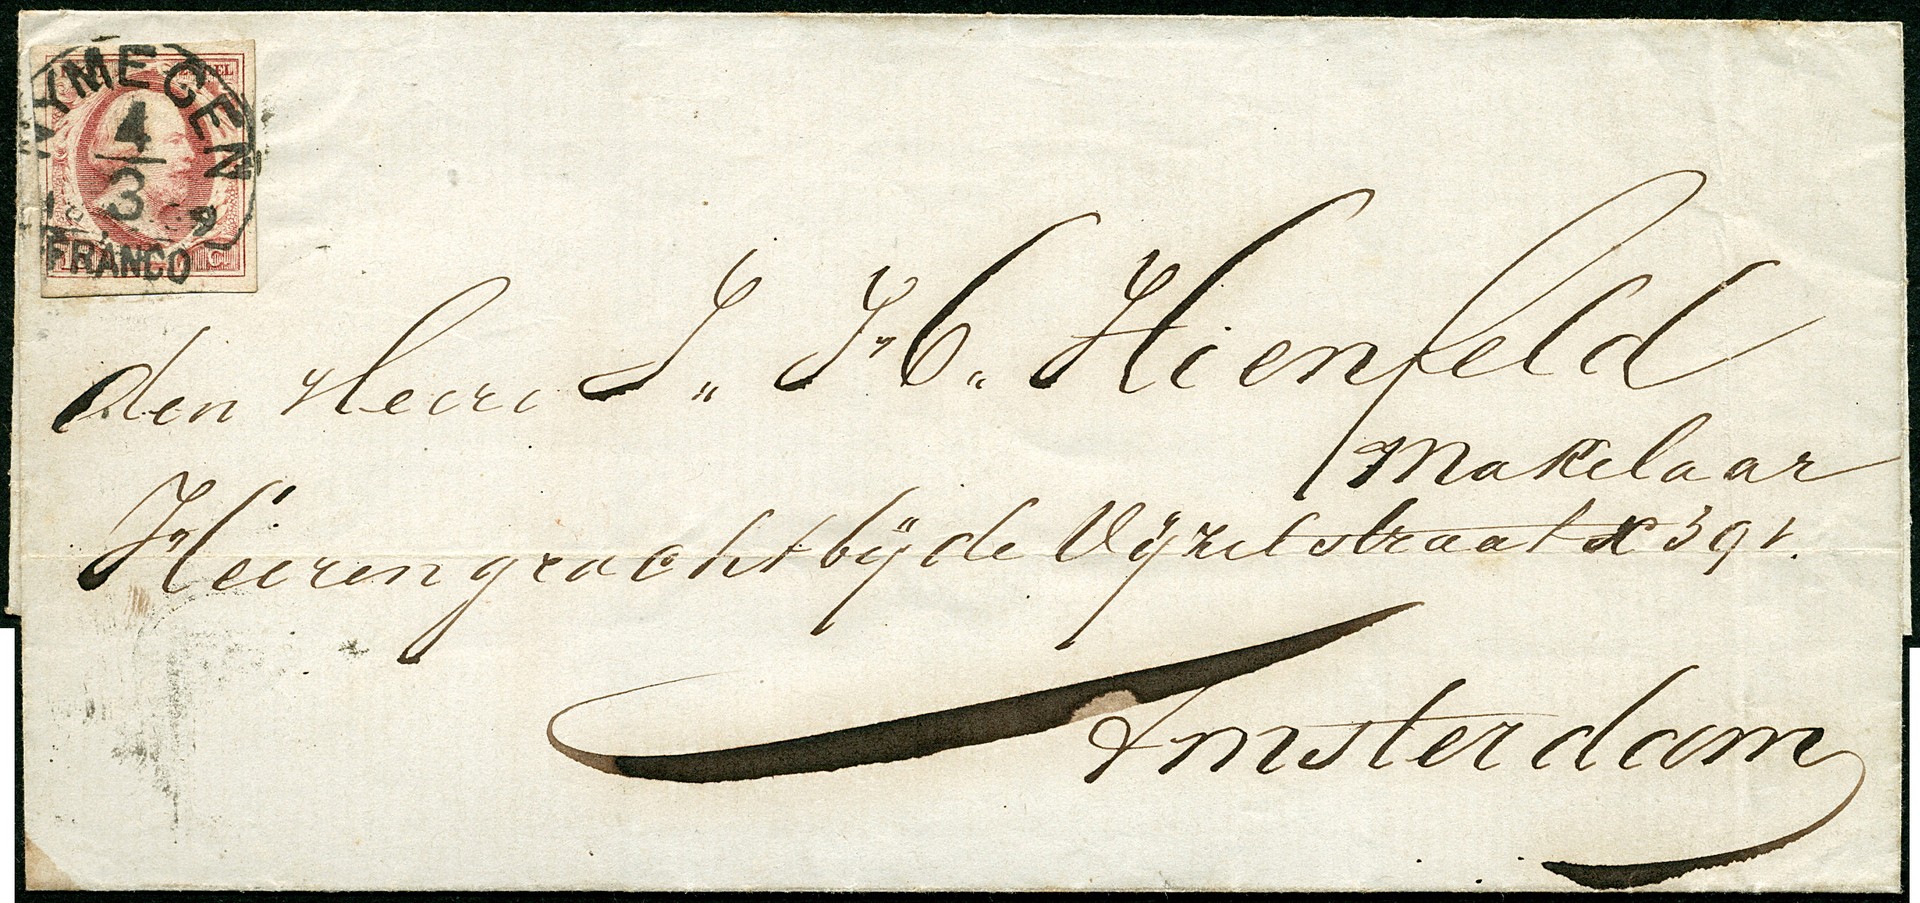 NYMEGEN
4
3
FRANCO
C.
den Heere J. H. C. Hienfeld
Makelaar
Heerengracht bÿ de Vÿzelstraat X 391.
Amsterdam